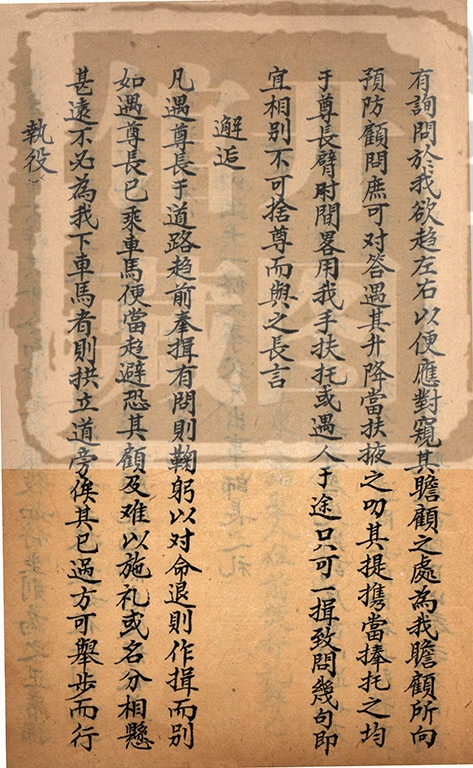 有詢問於我欲趋左右以便應對窺其瞻顧之處為我瞻顧所向
預防顧問庶可对答遇其升降當扶掖之叨其提攜當捧托之均
于尊長臂肘間畧用我手扶托或遇人于途只可一揖致問幾句即
宜相別不可捨尊而與之長言
邂逅
凡遇尊長于道路趋前奉揖有問則鞠躬以对命退則作揖而別
如遇尊長已乘車馬便當趋避恐其顧及难以施礼或名分相懸
甚遠不必為我下車馬者則拱立道旁俟其已過方可舉步而行
執役